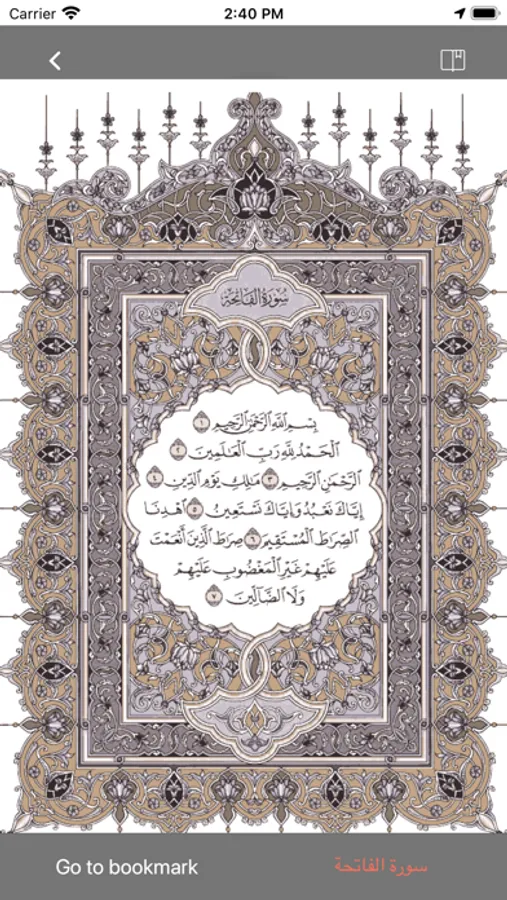 Carrier 2:40 PM
سُورَةُ الفَاتِحَةِ
بِسْمِ اللَّهِ الرَّحْمَٰنِ الرَّحِيمِ ١
الْحَمْدُ لِلَّهِ رَبِّ الْعَالَمِينَ ٢
الرَّحْمَٰنِ الرَّحِيمِ ٣ مَالِكِ يَوْمِ الدِّينِ ٤
إِيَّاكَ نَعْبُدُ وَإِيَّاكَ نَسْتَعِينُ ٥ اهْدِنَا
الصِّرَاطَ الْمُسْتَقِيمَ ٦ صِرَاطَ الَّذِينَ أَنْعَمْتَ
عَلَيْهِمْ غَيْرِ الْمَغْضُوبِ عَلَيْهِمْ
وَلَا الضَّالِّينَ ٧
Go to bookmark سورة الفاتحة